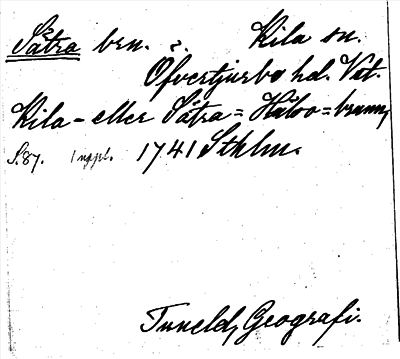 Sätra brn. i. Kila sn.
Öfvertjurbo hd. Vst.
Kila- eller Sätra= Håbo=brunn,
S. 87. 1 uppl. 1741 Sthlm.
Tuneld, Geografi.